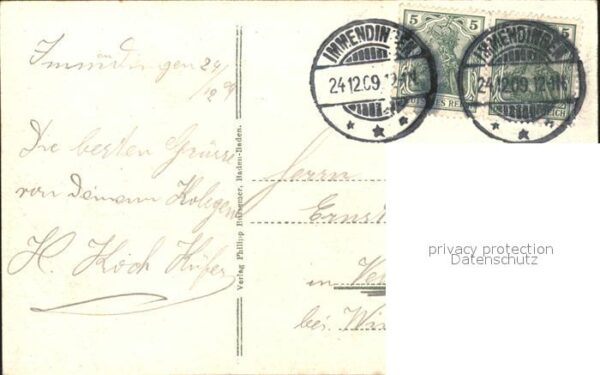 Immendingen 24/
12 09
Die besten Grüsse
von Deinem Kolegen
H. Koch Küfer
Verlag Philipp Bussemer, Baden-Baden.
IMMENDINGEN
24.12.09. 12-1N
5 5
DEUTSCHES REICH
IMMENDINGEN
24.12.09. 12-1N
5
REICH
Herrn
Ernst
in
bei
privacy protection
Datenschutz